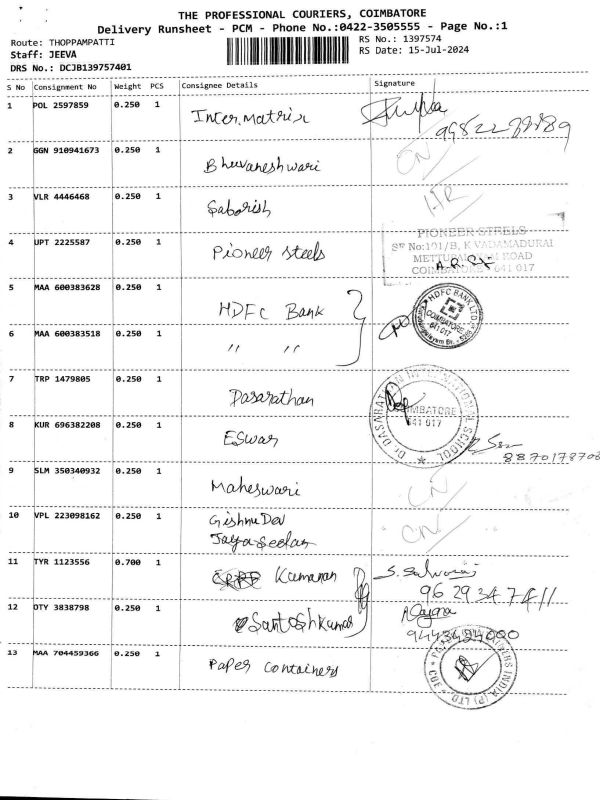 THE PROFESSIONAL COURIERS, COIMBATORE
Delivery Runsheet - PCM - Phone No.:0422-3505555 - Page No.:1
Route: THOPPAMPATTI
RS No.: 1397574
Staff: JEEVA
RS Date: 15-Jul-2024
DRS No.: DCJB139757401
S No Consignment No Weight PCS Consignee Details Signature
1 POL 2597859 0.250 1 Inter matrix
2 GGN 910941673 0.250 1 Bhuvaneshwari CN
3 VLR 4446468 0.250 1 Sabarish
4 UPT 2225587 0.250 1 Pioneer steels
PIONEER STEELS
SF No:101/B, K.VADAMADURAI
METTUPALAYAM ROAD
COIMBATORE - 641 017
5 MAA 600383628 0.250 1 HDFC Bank
HDFC BANK LTD.
COIMBATORE
641 017
6 MAA 600383518 0.250 1 " "
7 TRP 1479805 0.250 1 Dasarathan
Dr. DASARATHAN INTERNATIONAL SCHOOL
COIMBATORE
641 017
8 KUR 696382208 0.250 1 Eswar
9 SLM 350340932 0.250 1 Maheswari CN
10 VPL 223098162 0.250 1 Gishnu Dev CN
Jaya Seelan
11 TYR 1123556 0.700 1 Kumanan
9629347411
12 OTY 3838798 0.250 1 Santosh kumar
13 MAA 704459366 0.250 1 Paper containers